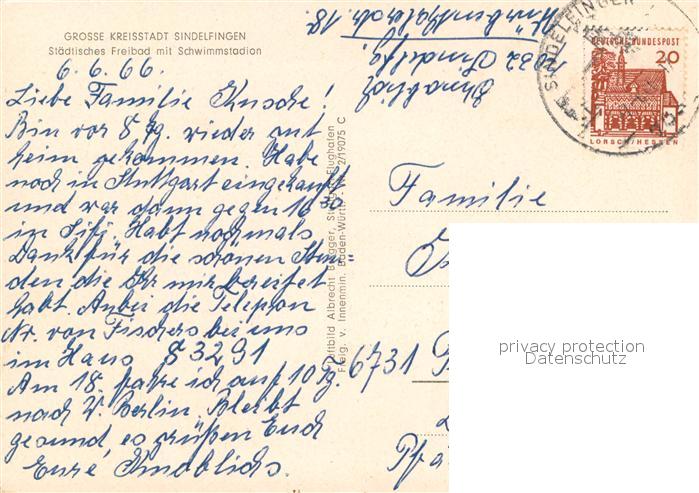 GROSSE KREISSTADT SINDELFINGEN
Städtisches Freibad mit Schwimmstadion
6.6.66.
Liebe Familie Kusche!
Bin vor 8 Tg. wieder gut
heim gekommen. Habe
noch in Stuttgart eingekauft
und war dann gegen 16 30
in Sifi. Habt nochmals
Dank für die schönen Stun-
den die Ihr mir bereitet
habt. Anbei die Telephon
Nr. von Fischers bei uns
im Haus 83291
Am 18. fahre ich auf 10 Tg.
nach W. Berlin. Bleibt
gesund, es grüßen Euch
Eure Knoblichs.
Luftbild Albrecht Brugger, Stuttgart-Flughafen
Freig. v. Innenmin. Baden-Württ. 2/19075 C
Knoblich
7032 Sindelfg
str. 18.
SINDELFINGEN
DEUTSCHE BUNDESPOST
20
LORSCH/HESSEN
Familie
6731
privacy protection
Datenschutz